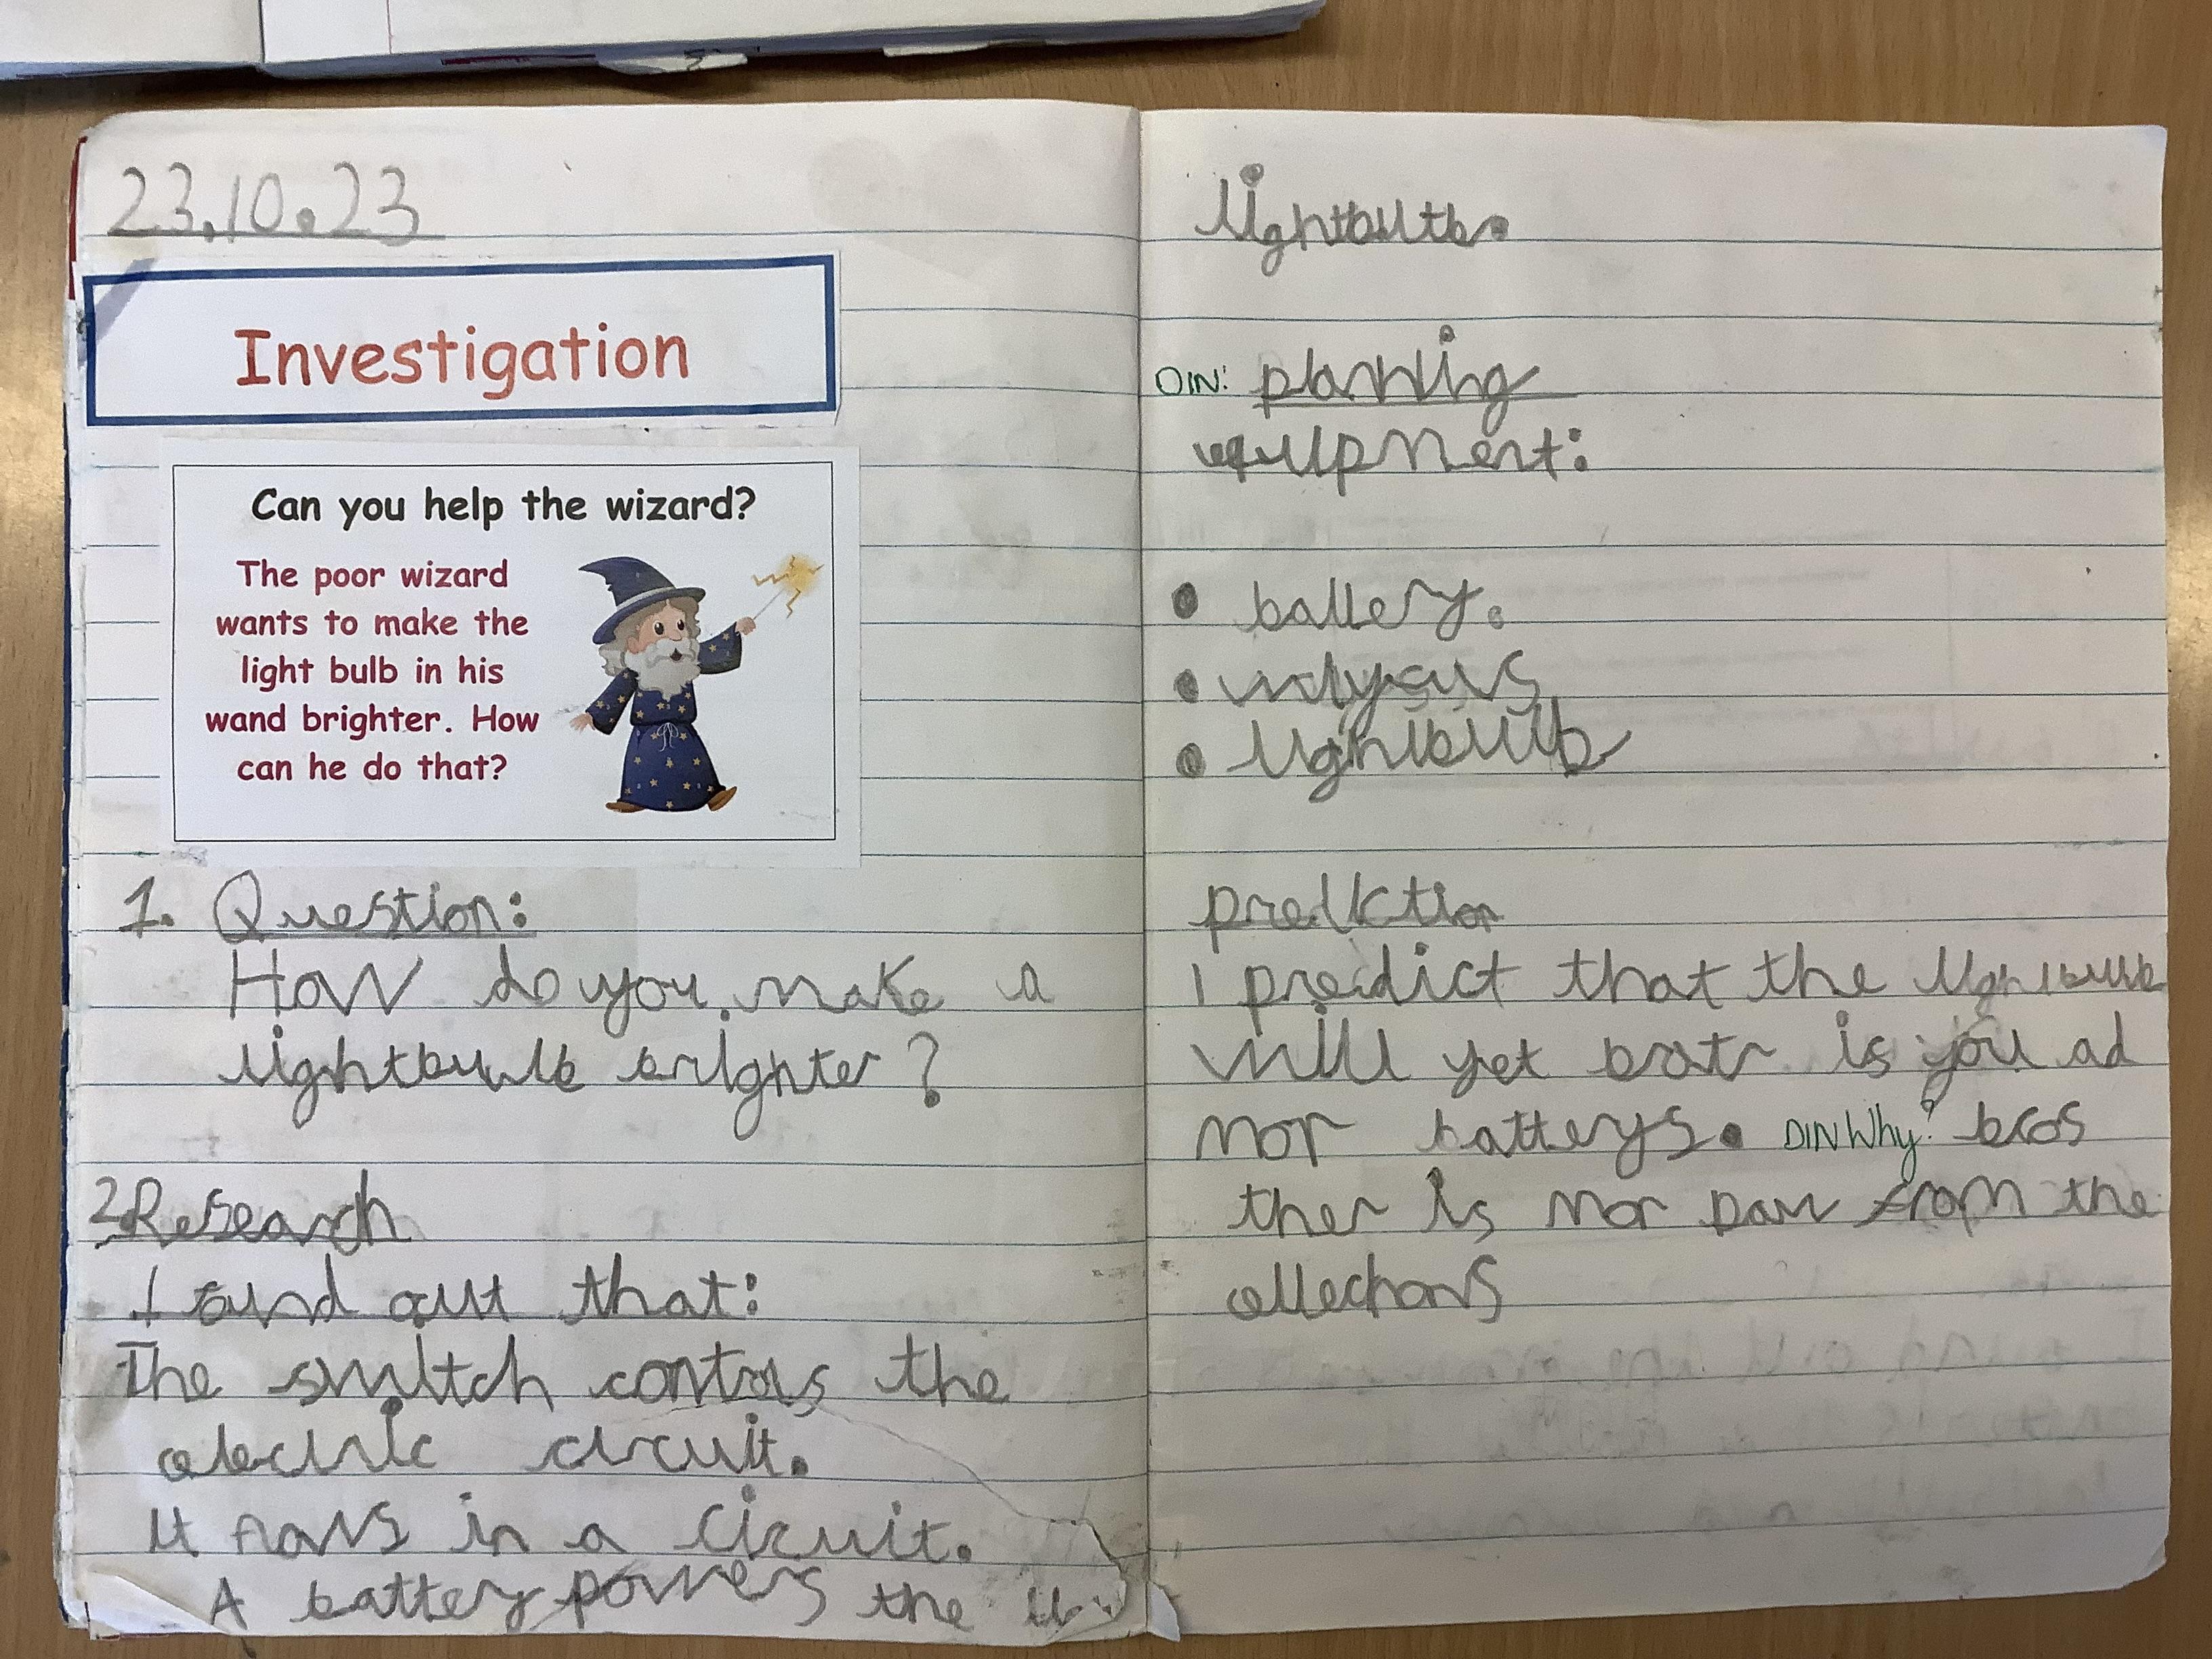 23.10.23
Investigation
Can you help the wizard?
The poor wizard
wants to make the
light bulb in his
wand brighter. How
can he do that?
1. Question:
How do you make a
lightbulb brighter?
2. Research
I found out that:
The switch controls the
electric circuit.
It flows in a circuit.
A battery powers the
lightbulb.
DIN: planning
equipment:
• battery.
•
• lightbulb
prediction
I predict that the lightbulb
will get is you ad
mor batterys. DIN Why? bcos
ther is mor paw from the